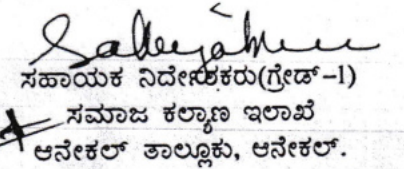 ಸಹಾಯಕ ನಿರ್ದೇಶಕರು(ಗ್ರೇಡ್-1)
ಸಮಾಜ ಕಲ್ಯಾಣ ಇಲಾಖೆ
ಆನೇಕಲ್ ತಾಲ್ಲೂಕು, ಆನೇಕಲ್.